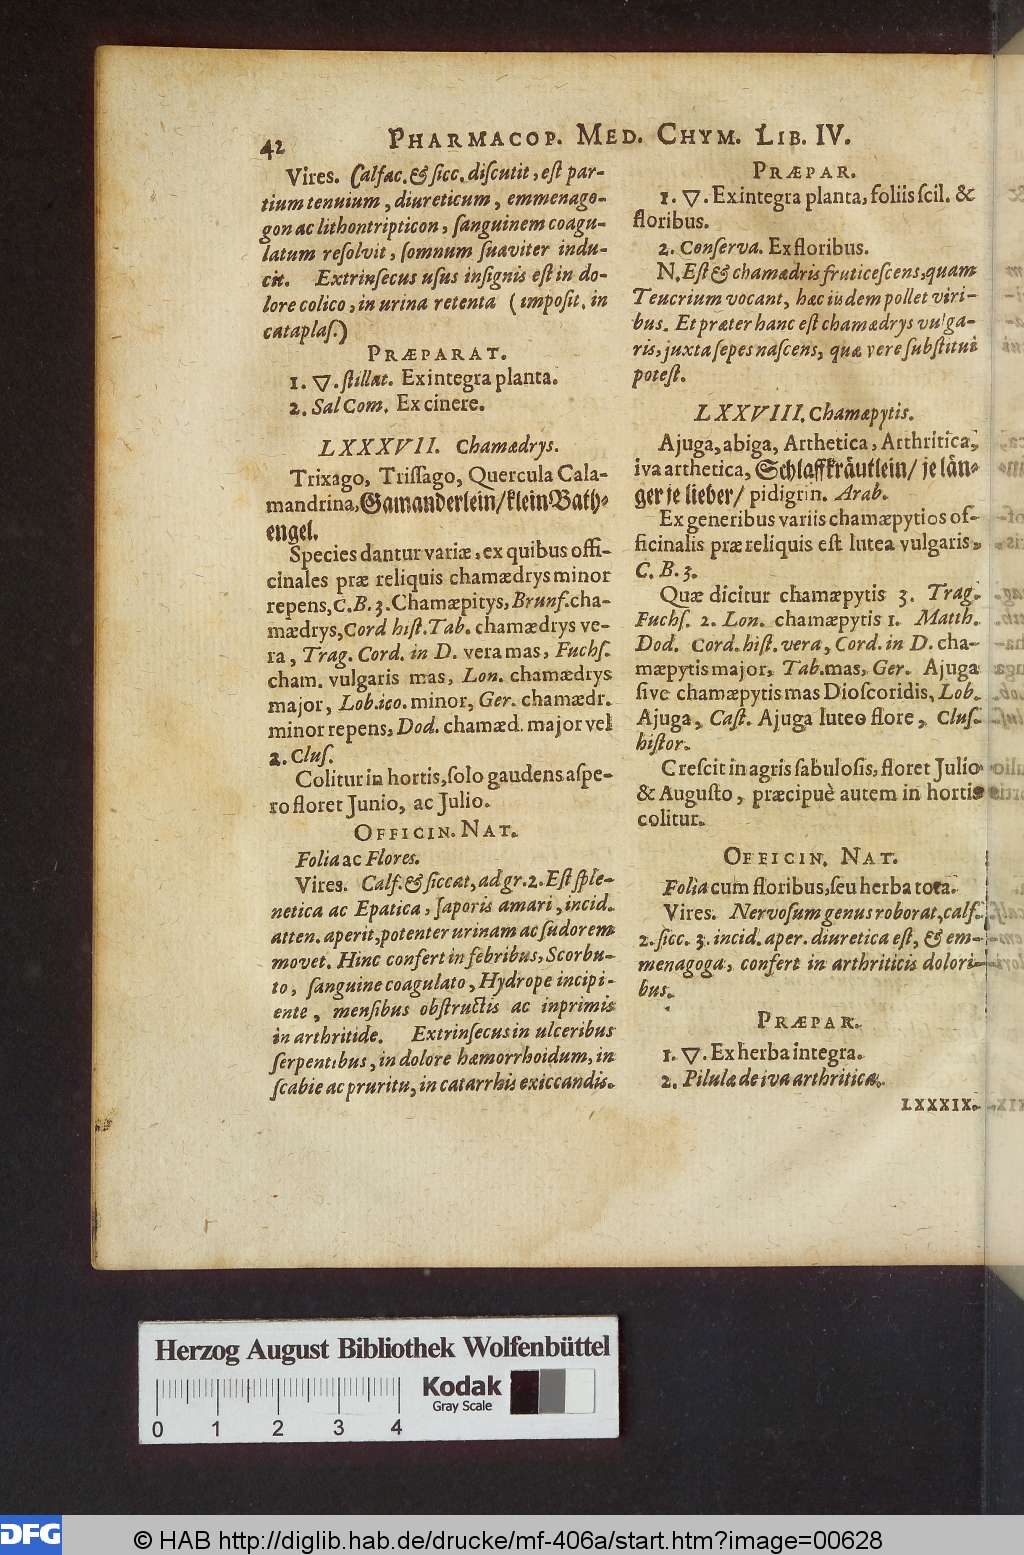 42 PHARMACOP. MED. CHYM. LIB. IV.
Vires. Calfac. & sicc. discutit, est par-
tium tenuium, diureticum, emmenago-
gon ac lithontripticon, sanguinem coagu-
latum resolvit, somnum suaviter indu-
cit. Extrinsecus usus insignis est in do-
lore colico, in urina retenta (imposit. in
cataplas.)
PRÆPARAT.
1. ▽. stillat. Ex integra planta.
2. Sal Com. Ex cinere.
LXXXVII. Chamædrys.
Trixago, Trissago, Quercula Cala-
mandrina, Gamanderlein/ klein Bath-
engel.
Species dantur variæ, ex quibus offi-
cinales præ reliquis chamædrys minor
repens, C. B. 3. Chamæpitys, Brunf. cha-
mædrys, Cord hist. Tab. chamædrys ve-
ra, Trag. Cord. in D. vera mas, Fuchs.
cham. vulgaris mas, Lon. chamædrys
major, Lob. ico. minor, Ger. chamædr.
minor repens, Dod. chamæd. major vel
2. Clus.
Colitur in hortis, solo gaudens aspe-
ro floret Junio, ac Julio.
OFFICIN. NAT.
Folia ac Flores.
Vires. Calf. & siccat, ad gr. 2. Est sple-
netica ac Epatica, saporis amari, incid.
atten. aperit, potenter urinam ac sudorem
movet. Hinc confert in febribus, Scorbu-
to, sanguine coagulato, Hydrope incipi-
ente, mensibus obstructis ac inprimis
in arthritide. Extrinsecus in ulceribus
serpentibus, in dolore hæmorrhoidum, in
scabie ac pruritu, in catarrhis exiccandis.
PRÆPAR.
1. ▽. Ex integra planta, foliis scil. &
floribus.
2. Conserva. Ex floribus.
N. Est & chamædris fruticescens, quam
Teucrium vocant, hæc iisdem pollet viri-
bus. Et præter hanc est chamædrys vulga-
ris, juxta sepes nascens, quæ vere substitui
potest.
LXXVIII. Chamæpytis.
Ajuga, abiga, Arthetica, Arthritica,
iva arthetica, Schlaffkräutlein/ je län-
ger je lieber/ pidigrin. Arab.
Ex generibus variis chamæpytios of-
ficinalis præ reliquis est lutea vulgaris,
C. B. 3.
Quæ dicitur chamæpytis 3. Trag.
Fuchs. 2. Lon. chamæpytis 1. Matth.
Dod. Cord. hist. vera, Cord. in D. cha-
mæpytis major, Tab. mas, Ger. Ajuga
sive chamæpytis mas Dioscoridis, Lob.
Ajuga, Cast. Ajuga luteo flore, Clus.
histor.
Crescit in agris sabulosis, floret Julio
& Augusto, præcipuè autem in hortis
colitur.
OFFICIN. NAT.
Folia cum floribus, seu herba tota.
Vires. Nervosum genus roborat, calf.
2. sicc. 3. incid. aper. diuretica est, & em-
menagoga, confert in arthriticis dolori-
bus.
PRÆPAR.
1. ▽. Ex herba integra.
2. Pilulæ de iva arthritica.
LXXXIX.
Herzog August Bibliothek Wolfenbüttel
0 1 2 3 4
Kodak
Gray Scale
DFG
© HAB http://diglib.hab.de/drucke/mf-406a/start.htm?image=00628